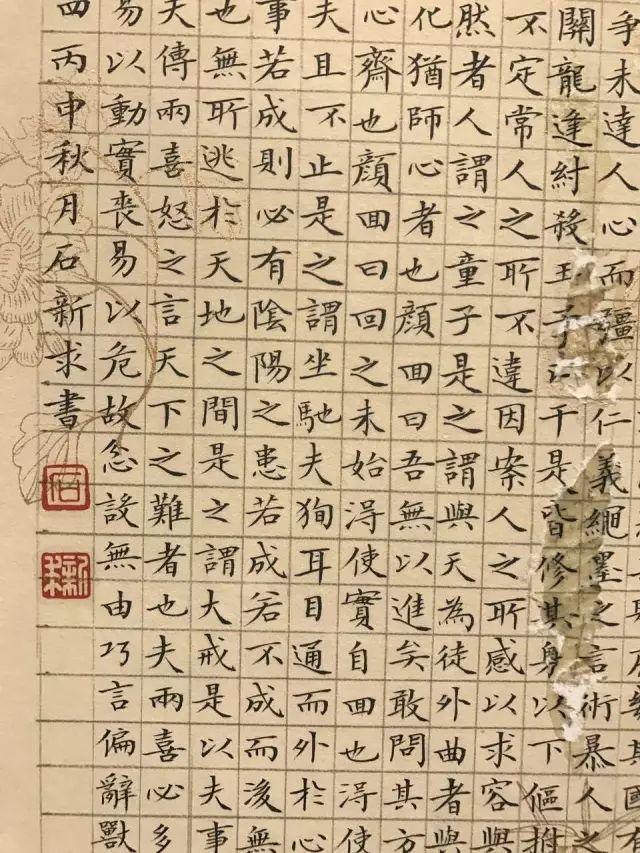 爭未達人心而彊以仁義繩墨之言術暴人之
關龍逢紂殺王子比干是皆修其身以下傴拊
不定常人之所不違因案人之所感以求容與
然者人謂之童子是之謂與天為徒外曲者與
化猶師心者也顏回曰吾無以進矣敢問其方
心齋也顏回曰回之未始得使實自回也得使
夫且不止是之謂坐馳夫狥耳目通而外於心
事若成則必有陰陽之患若成若不成而後無
也無所逃於天地之間是之謂大戒是以夫事
天傳兩喜怒之言天下之難者也夫兩喜必多
易以動實喪易以危故忿設無由巧言偏辭獸
丙申秋月石新求書
石
新求